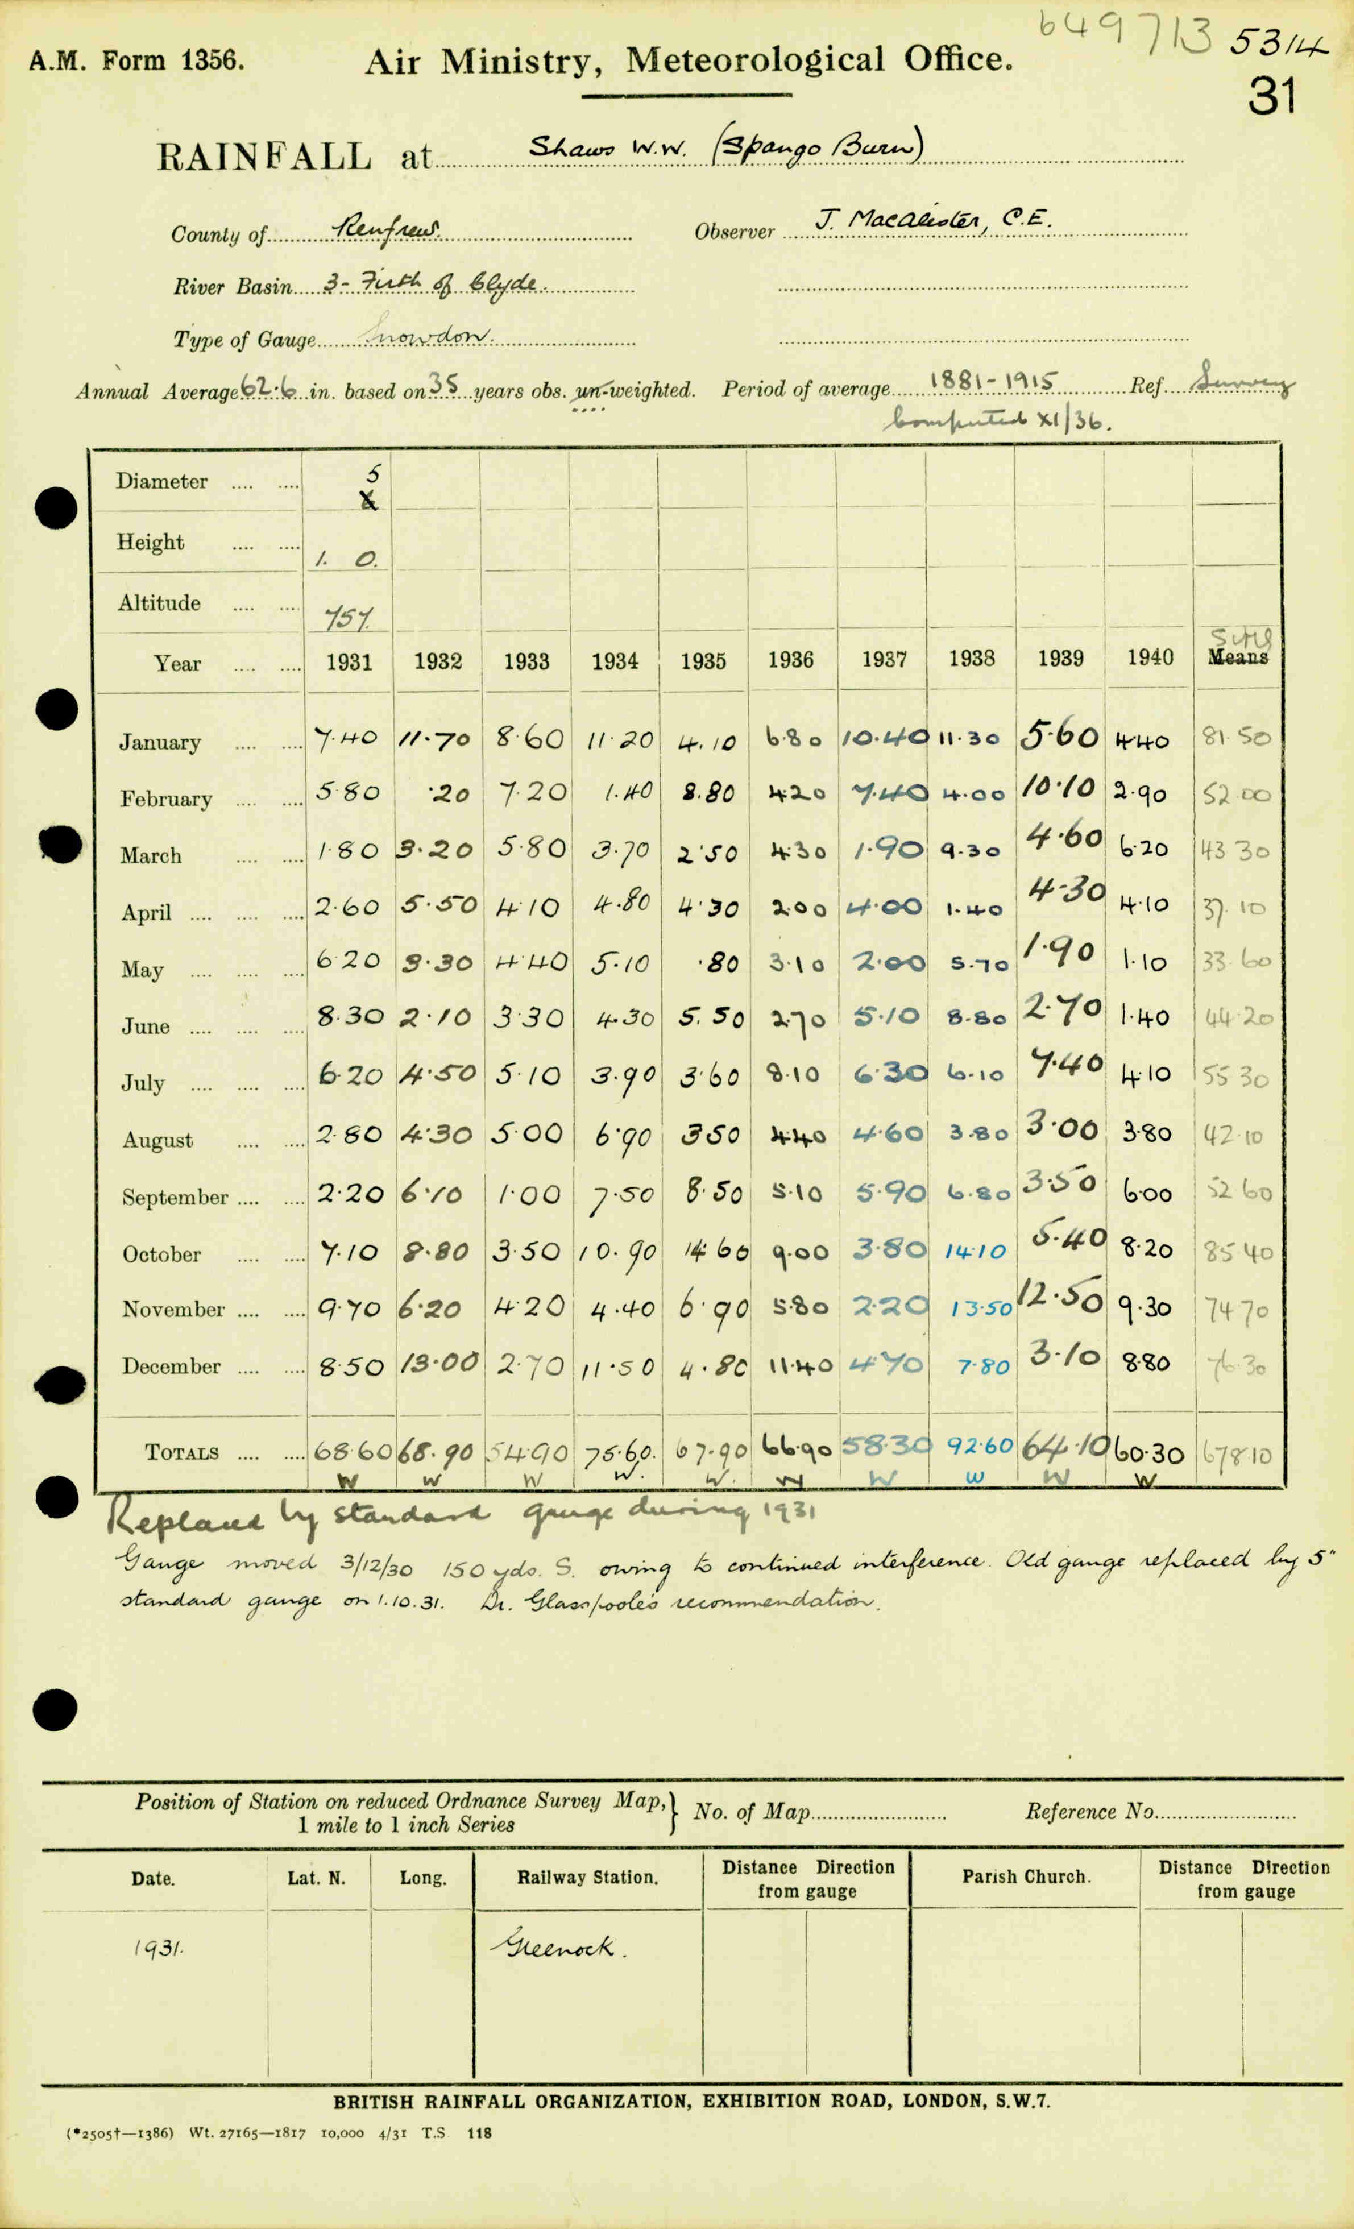 649713 5314
A.M. Form 1356. Air Ministry, Meteorological Office.
31
RAINFALL at Shaws W.W. (Spango Burn)
County of Renfrew. Observer J. Macalister, C.E.
River Basin 3- Firth of Clyde
Type of Gauge Snowdon.
Annual Average 62.6 in. based on 35 years obs. un-weighted. Period of average 1881-1915 Ref. Survey
Computed XI/36.
Diameter 5
Height 1. 0.
Altitude 757.
Year 1931 1932 1933 1934 1935 1936 1937 1938 1939 1940 Means
January 7.40 11.70 8.60 11.20 4.10 6.80 10.40 11.30 5.60 4.40 81.50
February 5.80 .20 7.20 1.40 8.80 4.20 7.40 4.00 10.10 2.90 52.00
March 1.80 3.20 5.80 3.70 2.50 4.30 1.90 9.30 4.60 6.20 43.30
April 2.60 5.50 4.10 4.80 4.30 2.00 4.00 1.40 4.30 4.10 37.10
May 6.20 3.30 4.40 5.10 .80 3.10 2.00 5.70 1.90 1.10 33.60
June 8.30 2.10 3.30 4.30 5.50 2.70 5.10 8.80 2.70 1.40 44.20
July 6.20 4.50 5.10 3.90 3.60 8.10 6.30 6.10 7.40 4.10 55.30
August 2.80 4.30 5.00 6.90 3.50 4.40 4.60 3.80 3.00 3.80 42.10
September 2.20 6.10 1.00 7.50 8.50 5.10 5.90 6.80 3.50 6.00 52.60
October 7.10 8.80 3.50 10.90 14.60 9.00 3.80 14.10 5.40 8.20 85.40
November 9.70 6.20 4.20 4.40 6.90 5.80 2.20 13.50 12.50 9.30 74.70
December 8.50 13.00 2.70 11.50 4.80 11.40 4.70 7.80 3.10 8.80 76.30
TOTALS 68.60 68.90 54.90 75.60. 67.90 66.90 58.30 92.60 64.10 60.30 678.10
W W W W. W. W W W W W
Replaced by standard gauge during 1931
Gauge moved 3/12/30 150 yds. S. owing to continued interference. Old gauge replaced by 5"
standard gauge on 1.10.31. Dr. Glasspoole's recommendation.
Position of Station on reduced Ordnance Survey Map, } No. of Map Reference No.
1 mile to 1 inch Series
Date. Lat. N. Long. Railway Station. Distance Direction from gauge Parish Church. Distance Direction from gauge
1931. Greenock.
BRITISH RAINFALL ORGANIZATION, EXHIBITION ROAD, LONDON, S.W.7.
(*2505†—1386) Wt. 27165—1817 10,000 4/31 T.S. 118